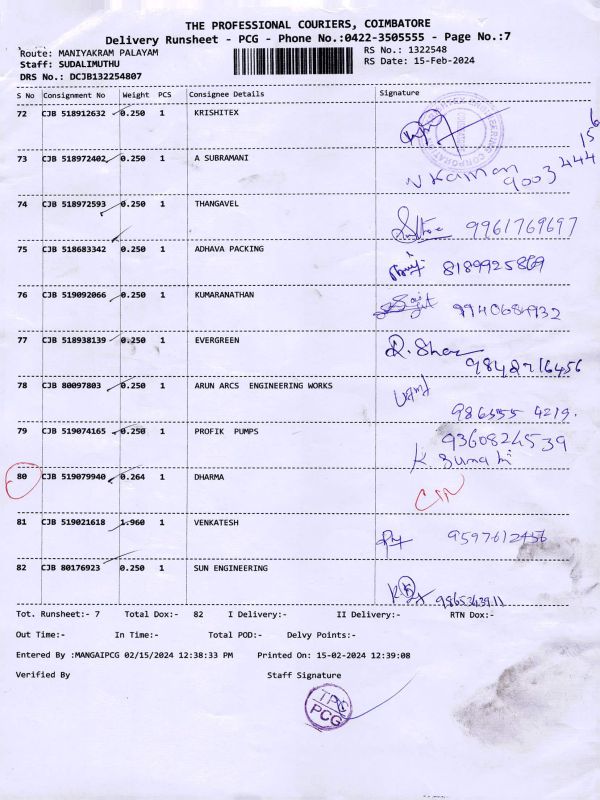 THE PROFESSIONAL COURIERS, COIMBATORE
Delivery Runsheet - PCG - Phone No.:0422-3505555 - Page No.:7
Route: MANIYAKRAM PALAYAM RS No.: 1322548
Staff: SUDALIMUTHU RS Date: 15-Feb-2024
DRS No.: DCJB132254807
S No Consignment No Weight PCS Consignee Details Signature
72 CJB 518912632 0.250 1 KRISHITEX
73 CJB 518972402 0.250 1 A SUBRAMANI
74 CJB 518972593 0.250 1 THANGAVEL 9961769697
75 CJB 518683342 0.250 1 ADHAVA PACKING 8189925869
76 CJB 519092066 0.250 1 KUMARANATHAN 9940684932
77 CJB 518938139 0.250 1 EVERGREEN 9842716456
78 CJB 80097803 0.250 1 ARUN ARCS ENGINEERING WORKS
79 CJB 519074165 0.250 1 PROFIK PUMPS 9360824539
80 CJB 519079940 0.264 1 DHARMA
81 CJB 519021618 1.960 1 VENKATESH 9597612456
82 CJB 80176923 0.250 1 SUN ENGINEERING
Tot. Runsheet:- 7 Total Dox:- 82 I Delivery:- II Delivery:- RTN Dox:-
Out Time:- In Time:- Total POD:- Delvy Points:-
Entered By :MANGAIPCG 02/15/2024 12:38:33 PM Printed On: 15-02-2024 12:39:08
Verified By Staff Signature
TPC
PCG